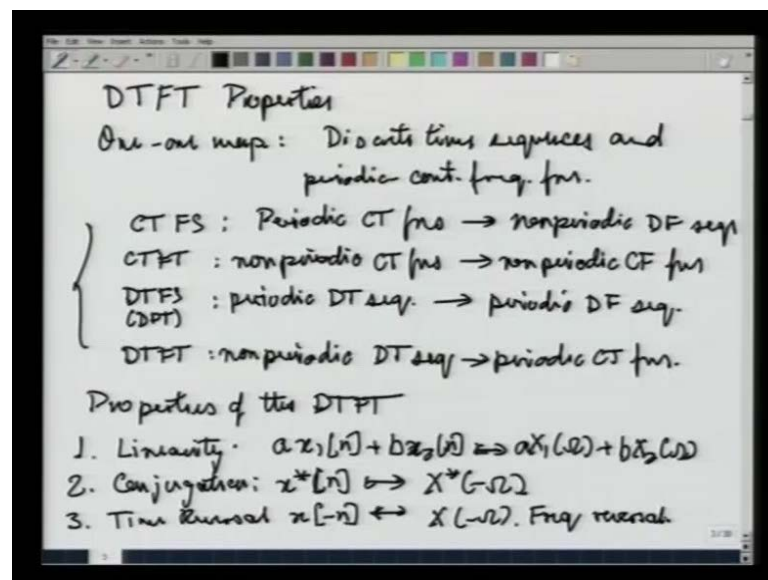 File Edit View Insert Actions Tools Help
DTFT Properties
One-one map: Discrete time sequences and
periodic cont. freq. fns.
CTFS : Periodic CT fns → nonperiodic DF seqs
CTFT : nonperiodic CT fns → nonperiodic CF fns
DTFS : periodic DT seq. → periodic DF seq.
(DFT)
DTFT : nonperiodic DT seq → periodic CF fns.
Properties of the DTFT
1. Linearity. ax₁[n] + bx₂[n] ⟺ aX₁(Ω) + bX₂(Ω)
2. Conjugation: x*[n] ↔ X*(-Ω)
3. Time Reversal x[-n] ↔ X(-Ω). Freq reversal